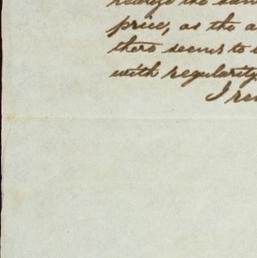 realize the sam
price, as the a
there seems to
with regularity
I re